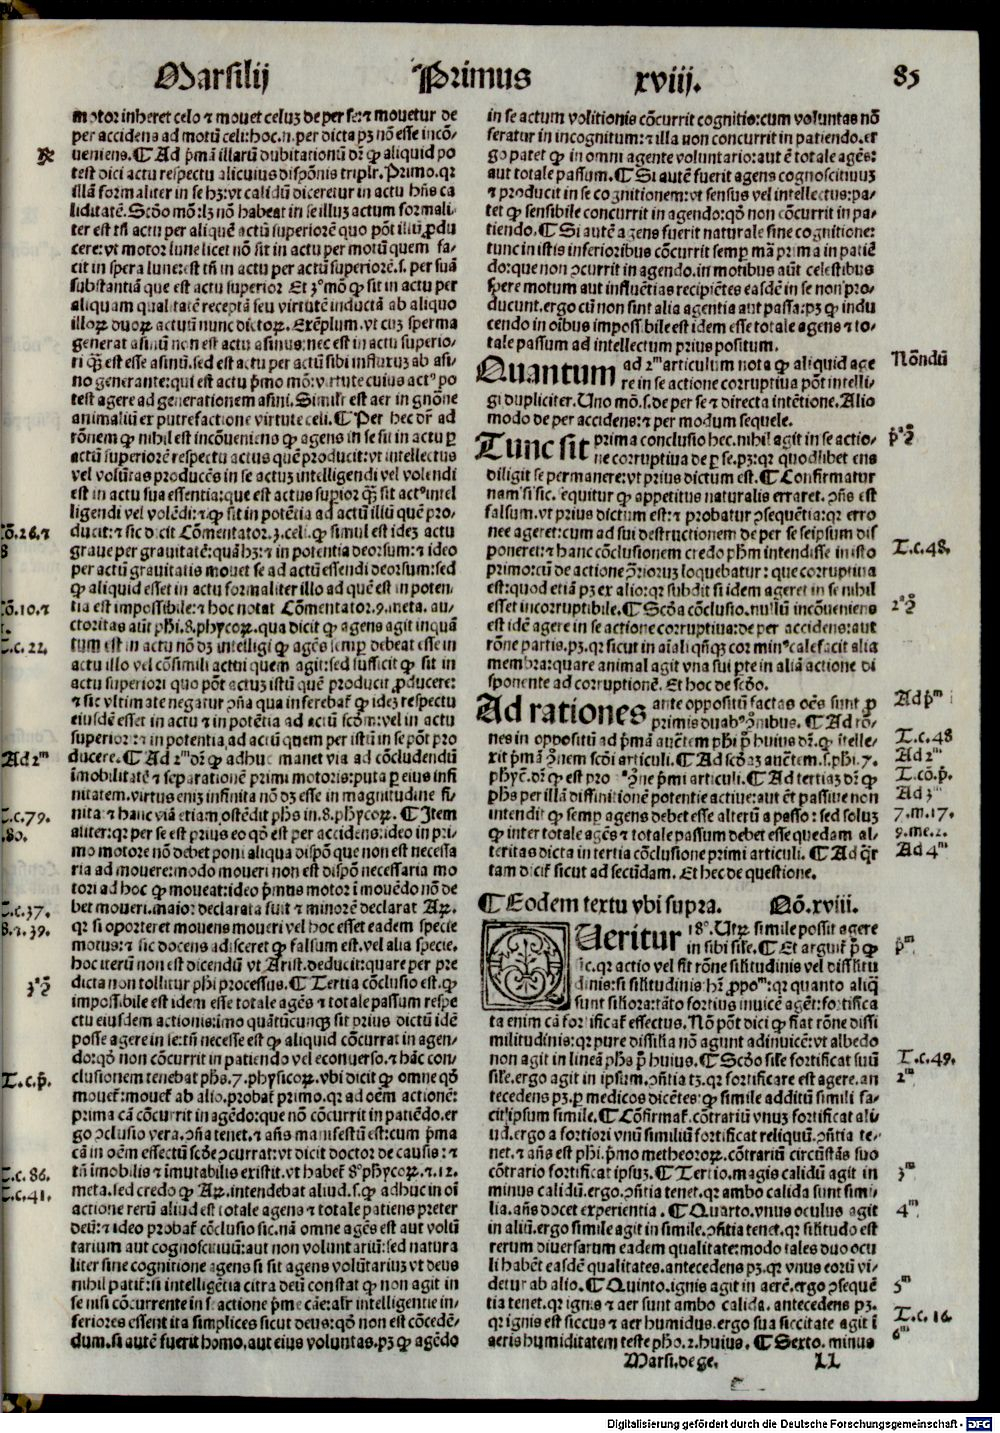 Marsilij Primus xviij. 85
motor inheret celo ⁊ mouet celuꝫ de per se:⁊ mouetur de
per accidens ad motū celi:hoc.n.per dicta pꝫ nō esse incō/
ueniens.¶Ad pͥmā illarū dubitationū dr̄ ꝙ aliquid po
test dici actu respectu alicuius dispōnis triplr̄.Primo.qꝛ
illā formaliter in se hꝫ:vt calidū diceretur in actu hn̄s ca
liditatē.Scḋo mō:lꝫ nō habeat in se illuꝫ actum formali/
ter est tn̄ actu per aliquē actū superiorē quo pōt illū ꝓdu
cere:vt motor lune licet nō sit in actu per motū quem fa/
cit in spera lune:est tn̄ in actu per actū superiorē.s.per suā
substantiā que est actu superior Et 3º mō ꝙ sit in actu per
aliquam qualitatē receptā seu virtutē inductā ab aliquo
illoꝝ duoꝝ actuū nunc dictoꝝ.Exēplum.vt cuꝫ sperma
generat asinū non est actu asinus:nec est in actu superio/
ri qꝫ est esse asinū.sed est actu per actū sibi influxuꝫ ab asi/
no generante:qui est actu pͥmo mō:virtute cuius actꝰ po
test agere ad generationem asini.Simile est aer in gnōne
animaliū ex putrefactione virtute celi.¶Per hec dr̄ ad
rōnem ꝙ nihil est incōueniens ꝙ agens in se sit in actu ꝑ
actū superiorē respectu actus quē producit:vt intellectus
vel volūtas producēs in se actuꝫ intelligendi vel volendi
est in actu sua essentia:que est actus supior qꝫ sit actꝰ intel
ligendi vel volēdi:⁊ ꝙ sit in potētia ad actū illū quē pro/
ducit:⁊ sic dicit Cōmentator.3.celi.ꝙ simul est ideꝫ actu
graue per grauitatē:quā hꝫ:⁊ in potentia deorsum:⁊ ideo
per actū grauitatis mouet se ad actū essendi deorsum:sed
ꝙ aliquid esset in actu formaliter illo ad quē est in poten/
tia est impossibile:⁊ hoc notat Cōmentator.9.meta.au/
ctoritas aūt phi.8.phycoꝝ.qua dicit ꝙ agens agit inquā
tum est in actu nō dꝫ intelligi ꝙ agēs semꝑ debeat esse in
actu illo vel cōsimili actui quem agit:sed sufficit ꝙ sit in
actu superiori quo pōt actuꝫ istū quē producit ꝓducere:
⁊ sic vltimate negatur ꝯn̄a qua inferebat̄ ꝙ ideꝫ respectu
eiusdē esset in actu ⁊ in potētia ad actū scḋm:vel in actu
superiori:⁊ in potentia ad actū quem per istū in se pōt pro
ducere.¶Ad 2ᵐ dr̄ ꝙ adhuc manet via ad cōcludendū
īmobilitatē ⁊ separationē primi motoris:puta ꝑ eius infi
nitatem.virtus eniꝫ infinita nō dꝫ esse in magnitudine fi/
nita:⁊ hanc viā etiam ostēdit phs in.8.phycoꝝ.¶Item
aliter:qꝛ per se est prius eo qō est per accidens:ideo in pri/
mo motore nōn debet poni aliqua dispō que non est necessa
ria ad mouere:modo moueri non est dispō necessaria mo
tori ad hoc ꝙ moueat:ideo pͥmus motor ī mouēdo nō de
bet moueri.maior declarata fuit ⁊ minorē declarat Ar̄.
qꝛ si oporteret mouens moueri vel hoc esset eadem specie
motus:⁊ sic docens adisceret ꝙ falsum est.vel alia specie.
hoc iterū non est dicendū vt Arist.deducit:quare per pre
dicta non tollitur phi processus.¶Tertia cōclusio est.ꝙ
impossibile est idem esse totale agēs ⁊ totale passum respe
ctu eiusdem actionis:imo quātūcunqꝫ sit prius dictū idē
posse agere in se:tn̄ necesse est ꝙ aliquid cōcurrat in agen/
do:qō non cōcurrit in patiendo vel econuerso.⁊ hāc con/
clusionem tenebat phs.7.physicoꝝ.vbi dicit ꝙ omne qō
mouet̄:mouet̄ ab alio.probat̄ primo.qꝛ ad oēm actionē:
prima cā cōcurrit in agēdo:que nō cōcurrit in patiēdo.er
go ꝯclusio vera.ꝯn̄a tenet.⁊ an̄s manifestū est:cum pͥma
cā in oēm effectū scḋe ꝯcurrat:vt dicit doctor de causis:⁊
tn̄ imobilis ⁊ imutabilis existit.vt habet̄ 8º phycoꝝ.⁊.12.
meta.sed credo ꝙ Ar̄.intendebat aliud.s.ꝙ adhuc in oī
actione rerū aliud est totale agens ⁊ totale patiens preter
deū:⁊ ideo probat̄ cōclusio sic.nā omne agēs est aut volū
tarium aut cognosciuuū:aut non voluntariū:sed natura
liter sine cognitione agens si sit agens volūtariuꝫ vt deus
nihil patit̄:si intelligētia citra deū constat ꝙ non agit in
se nisi cōcurrente in sui actione pͥme cāe:alr̄ intelligentie in/
feriores essent ita simplices sicut deus:qō non est cōcedē/
dum.si autē fuerit homo.aut eius voluntas.pꝫ ꝙ agēdo
Rͬ
Cō.26.⁊
8
Cō.10.⁊
T.c.22.
Ad 2ᵐ
T.c.79.
.80.
T.c.37.
8.⁊.39.
3ª ꝯ
T.c.pͥ.
T.c.86.
T.c.41.
in se actum volitionis cōcurrit cognitio:cum voluntas nō
feratur in incognitum:⁊ illa non concurrit in patiendo.er
go patet ꝙ in omni agente voluntario:aut ē totale agēs:
aut totale passum.¶Si autē fuerit agens cognoscitiuuꝫ
⁊ producit in se cognitionem:vt sensus vel intellectus:pa/
tet ꝙ sensibile concurrit in agendo:qō non cōcurrit in pa/
tiendo.¶Si autē agens fuerit naturale sine cognitione:
tunc in istis inferioribus cōcurrit semꝑ mā prima in patiē
do:que non ꝯcurrit in agendo.in motibus aūt celestibus
spere motum aut influētias recipiētes easdē in se non pro/
ducunt.ergo cū non sint alia agentia aut passa:pꝫ ꝙ indu
cendo in oībus impossibile est idem esse totale agens ⁊ to/
tale passum ad intellectum prius positum.
Quantum ad 2ᵐ articulum nota ꝙ aliquid age
re in se actione corruptiua pōt intelli/
gi dupliciter.Uno mō.s.de per se ⁊ directa intētione.Alio
modo de per accidens:⁊ per modum sequele.
Tunc sit prima conclusio hec.nihil agit in se actio/
ne corruptiua de ꝑ se.pꝫ:qꝛ quodlibet ens
diligit se permanere:vt prius dictum est.¶Confirmatur
nam si sic.sequitur ꝙ appetitus naturalis erraret.ꝯn̄s est
falsum.vt prius dictum est:⁊ probatur ꝯsequētia:qꝛ erro
nee ageret:cum ad sui destructionem de per se seipsum dis
poneret:⁊ hanc cōclusionem credo phm intendisse in isto
primo:cū de actione ꝯͣrioruꝫ loquebatur:que corruptiua
est:quod etiā pꝫ ex alio:qꝛ subdit si idem ageret in se nihil
esset incorruptibile.¶Scḋa cōclusio.nullū incōueniens
est idē agere in se actione corruptiua:de per accidens:aut
rōne partis.pꝫ.qꝛ sicut in aīali qn̄qꝫ cor minꝰ calefacit alia
membra:quare animal agit vna sui ꝑte in aliā actione di
sponente ad corruptionē.Et hoc de scḋo.
Ad rationes ante oppositū factas oēs sunt ꝓ
primis duabꝰ ꝯnibus.¶Ad rō/
nes in oppositū ad pͥmā auc̄tem phi pͥ huius dr̄.ꝙ ītelle/
xit pͥmā ꝯ̄nem scḋi articuli.¶Ad scḋaꝫ auc̄tem.s.phi.7.
phyc̄.dr̄ ꝙ est pro 3ª ꝯne pͥmi articuli.¶Ad tertiaꝫ dr̄ ꝙ
phs per illā diffinitionē potentie actiue:aut ēt passiue non
intendit ꝙ semꝑ agens debet esse alterū a passo:sed soluꝫ
ꝙ inter totale agēs ⁊ totale passum debet esse quedam al/
teritas dicta in tertia cōclusione primi articuli.¶Ad qͣr
tam dicit̄ sicut ad secūdam.Et hec de questione.
¶Eodem textu vbi supra. Nō.xviii.
Ueritur 18º.Utꝝ simile possit agere
in sibi sile.¶Et arguit̄ pͥ ꝙ
sic.qꝛ actio vel fit rōne silitudinis vel dissilitu
dinis:si silitudinis hr̄ ꝓpoᵐ:qꝛ quanto aliqͣ
sunt siliora:tāto fortius inuicē agēt:fortifica
ta enim cā fortificat̄ effectus.Nō pōt dici ꝙ fiat rōne dissi
militudinis:qꝛ pure dissilia nō agunt adinuicē:vt albedo
non agit in lineā phs pͥ huius.¶Scḋo sile fortificat suū
sile.ergo agit in ipsum.ꝯn̄tia tꝫ.qꝛ fortificare est agere.an
tecedens pꝫ.ꝑ medicos dicētes:ꝙ simile additū simili fa/
cit ipsum simile.¶Cōfirmat̄.cōtrariū vnuꝫ fortificat ali/
ud.ergo a fortiori vnū similiū fortificat reliquū.ꝯn̄tia te/
net.⁊ an̄s est phi.pͥmo metheoroꝝ.cōtrariū circūstās suo
cōtrario fortificat ipsuꝫ.¶Tertio.magis calidū agit in
minus calidū.ergo.ꝯn̄tia tenet.qꝛ ambo calida sunt simi/
lia.an̄s docet experientia.¶Quarto.vnus oculus agit
in aliū.ergo simile agit in simile.ꝯn̄tia tenet.qꝛ silitudo est
rerum diuersarum eadem qualitate:modo tales duo ocu
li habēt easdē qualitates.antecedens pꝫ.qꝛ vnus eorū vi/
detur ab alio.¶Quinto.ignis agit in aerē.ergo ꝯsequē
tia tenet.qꝛ ignis ⁊ aer sunt ambo calida.antecedens pꝫ.
qꝛ ignis est siccus ⁊ aer humidus.ergo sua siccitate agit ī
aeris humiditatem teste pho.2.huius.¶Sexto.minus
Marsi.de ge. LL
Nōndū
pͣ ꝯ
T.c.48.
2ª ꝯ
Ad pͫ
T.c.48
Ad 2ᵐ
T.cō.pͥ.
Ad 3ᵐ
7.m.17.
9.me.2.
Ad 4ᵐ
pͫ
T.c.49.
2ᵐ
3ᵐ
4ᵐ
5ᵐ
T.c.16.
6ᵐ
Digitalisierung gefördert durch die Deutsche Forschungsgemeinschaft - DFG